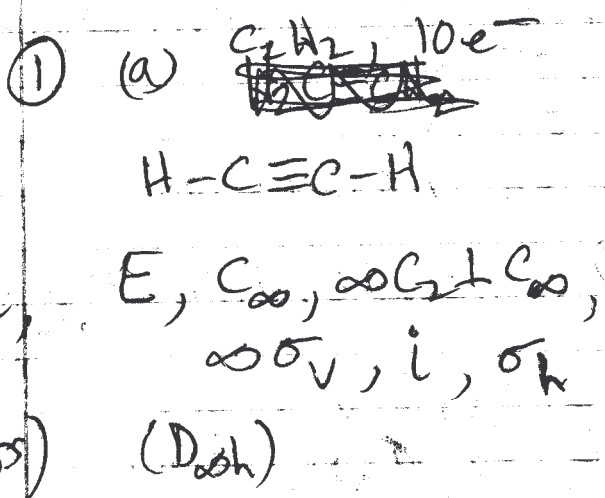 ① (a) C₂H₂, 10e⁻
H-C≡C-H
E, C∞, ∞C₂⊥C∞,
∞σᵥ, i, σₕ
(D∞h)